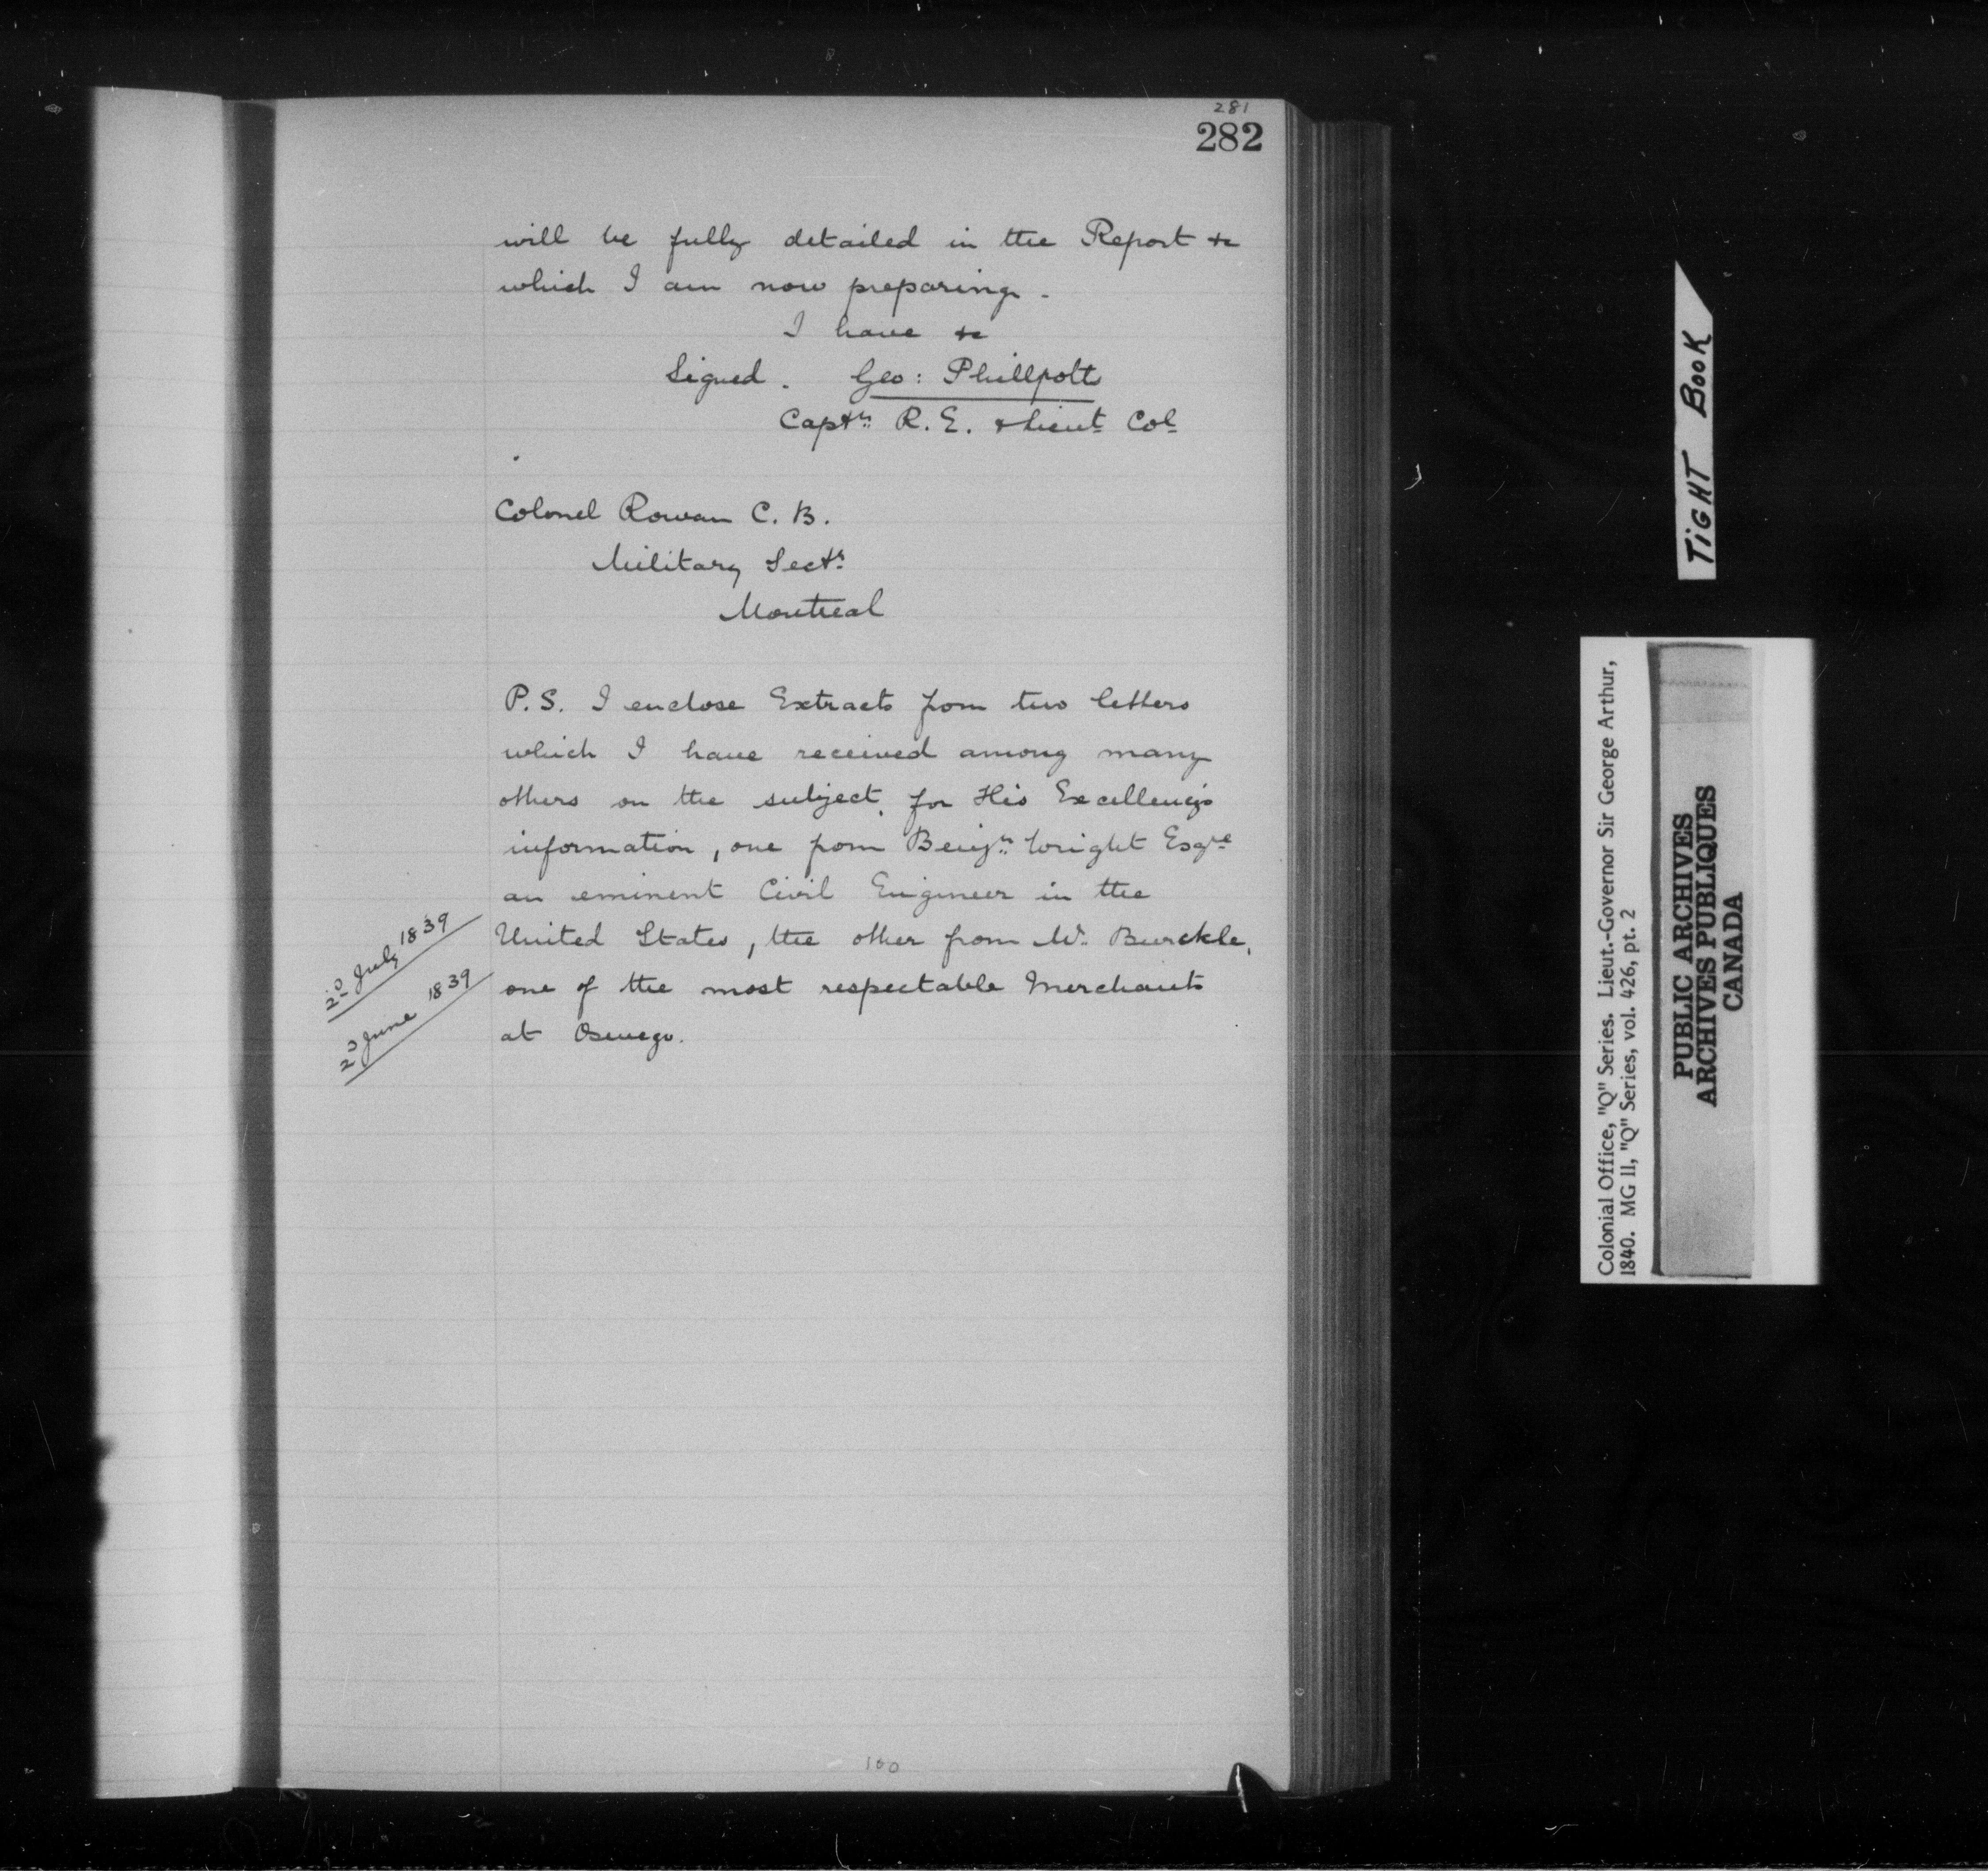 281
282
will be fully detailed in the Report &c
which I am now preparing.
I have &c
Signed. Geo: Phillpotts
Captn R. E. & Lieut Col
Colonel Rowan C. B.
Military Secty
Montreal
P.S. I enclose Extracts from two letters
which I have received among many
others on the subject, for His Excellency's
information, one from Benjn Wright Esqre
an eminent Civil Engineer in the
2d July 1839
United States, the other from Mr. Burckle,
2d June 1839
one of the most respectable Merchants
at Oswego.
100
TIGHT BOOK
Colonial Office, "Q" Series. Lieut.-Governor Sir George Arthur,
1840. MG 11, "Q" Series, vol. 426, pt. 2
PUBLIC ARCHIVES
ARCHIVES PUBLIQUES
CANADA